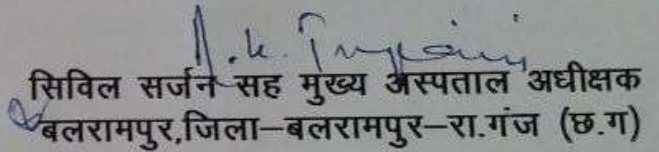 सिविल सर्जन सह मुख्य अस्पताल अधीक्षक
बलरामपुर,जिला–बलरामपुर–रा.गंज (छ.ग)